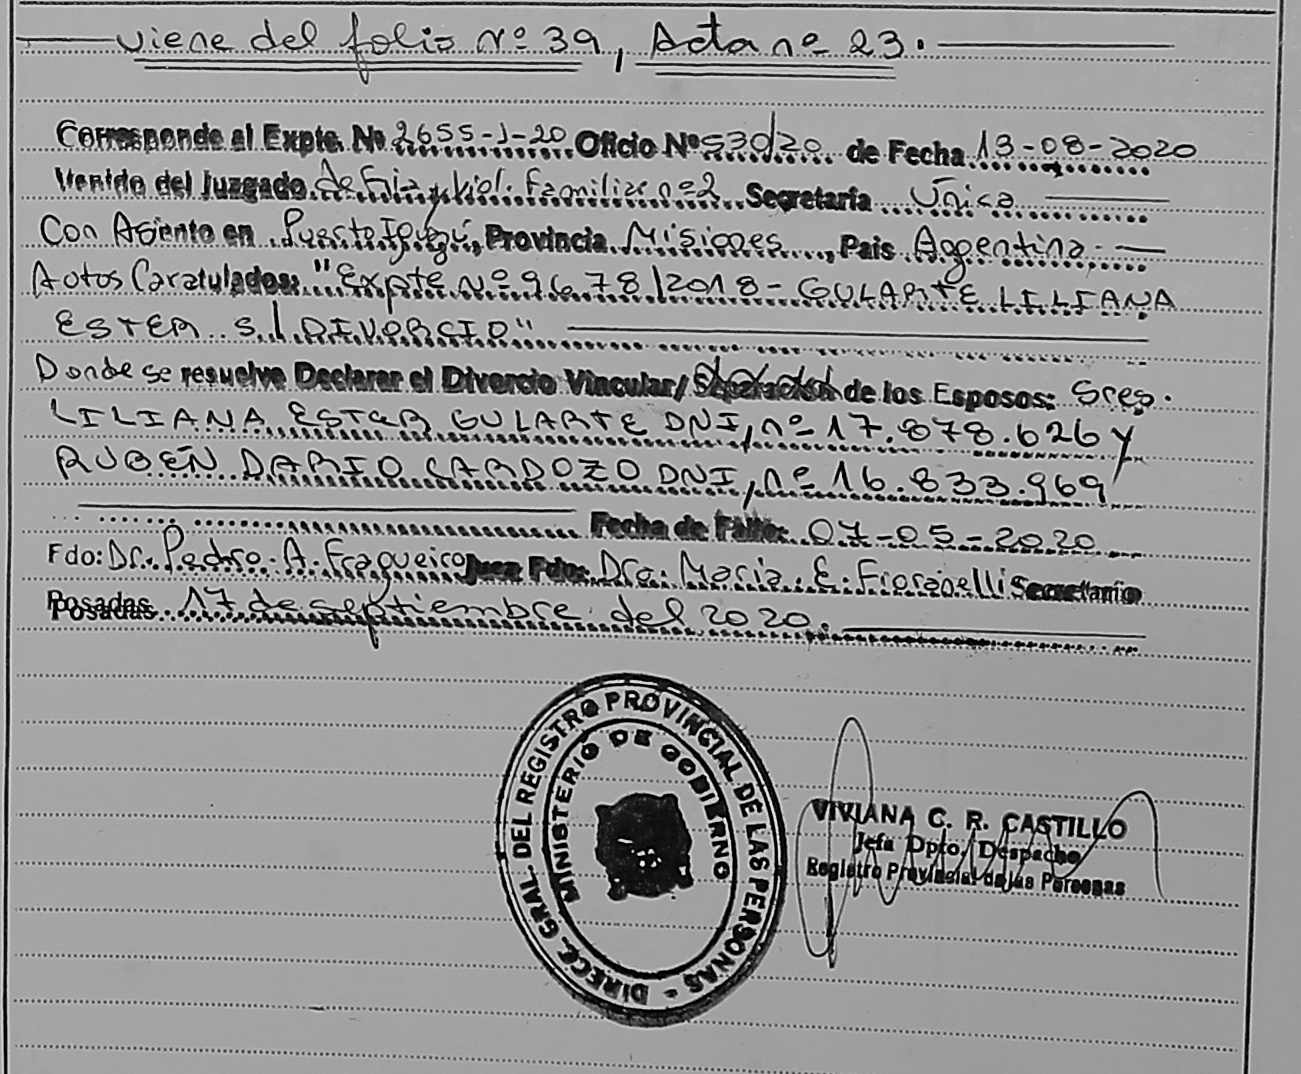 viene del folio nº 39, Acta nº 23.
Corresponde al Expte. Nº 2655-J-20 Oficio Nº 530/20 de Fecha 13-08-2020
Venido del Juzgado de Flia y Viol. Familiar nº2 Secretaria Única
Con Asiento en Puerto Iguazú, Provincia Misiones, Pais Argentina.
Autos Caratulados: "Expte Nº 9678/2018 - GULARTE LILIANA
ESTER S/ DIVORCIO"
Donde se resuelve Declarar el Divorcio Vincular/ Separación de los Esposos: Sres.
LILIANA ESTER GULARTE DNI, nº 17.878.626 y
RUBEN DARIO CARDOZO DNI, nº 16.833.969
Fecha de Fallo: 07-05-2020
Fdo: Dr. Pedro A. Fragueiro Juez Fdo: Dra. Maria E. Fioranelli Secretario
Posadas 17 de septiembre del 2020.
DIRECC. GRAL. DEL REGISTRO PROVINCIAL DE LAS PERSONAS -
MINISTERIO DE GOBIERNO
VIVIANA C. R. CASTILLO
Jefa Dpto. Despacho
Registro Provincial de las Personas